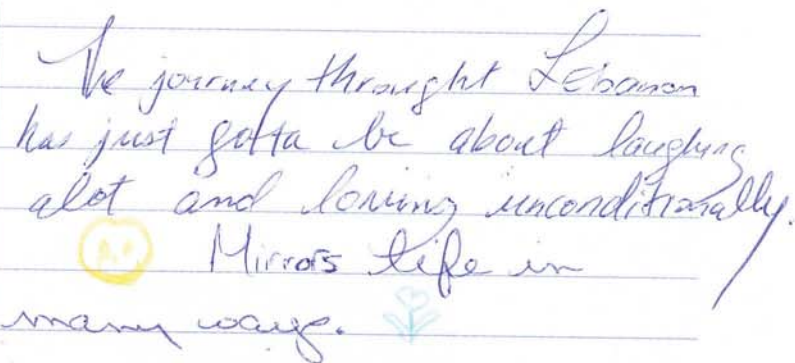 The journey throught Lebanon
has just gotta be about laughing
alot and loving unconditionally.
Mirrors life in
many ways.